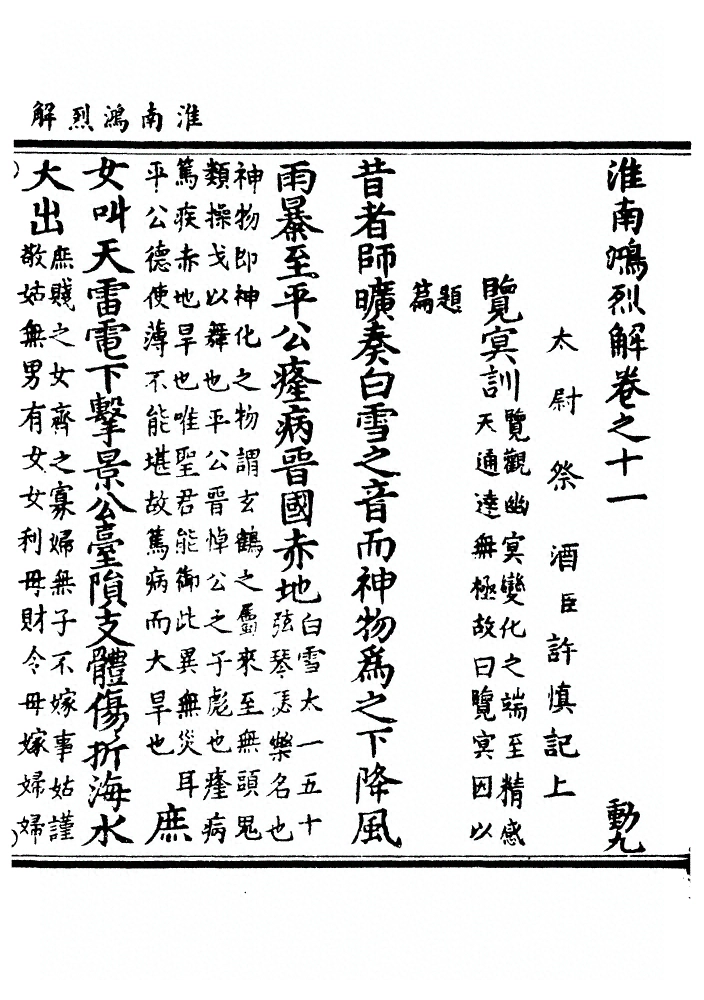 淮南鴻烈解
淮南鴻烈解卷之十一 動九
太尉祭酒臣許慎記上
覽冥訓
覽觀幽冥變化之端至精感
天通達無極故曰覽冥因以
題
篇
昔者師曠奏白雪之音而神物爲之下降風
雨暴至平公癃病晉國赤地
白雪太一五十
弦琴瑟樂名也
神物即神化之物謂玄鶴之屬來至無頭鬼
類操戈以舞也平公晉悼公之子彪也癃病
篤疾赤地旱也唯聖君能御此異無災耳
平公德使薄不能堪故篤病而大旱也
庶
女叫天雷電下擊景公臺隕支體傷折海水
大出
庶賤之女齊之寡婦無子不嫁事姑謹
敬姑無男有女女利母財令母嫁婦婦